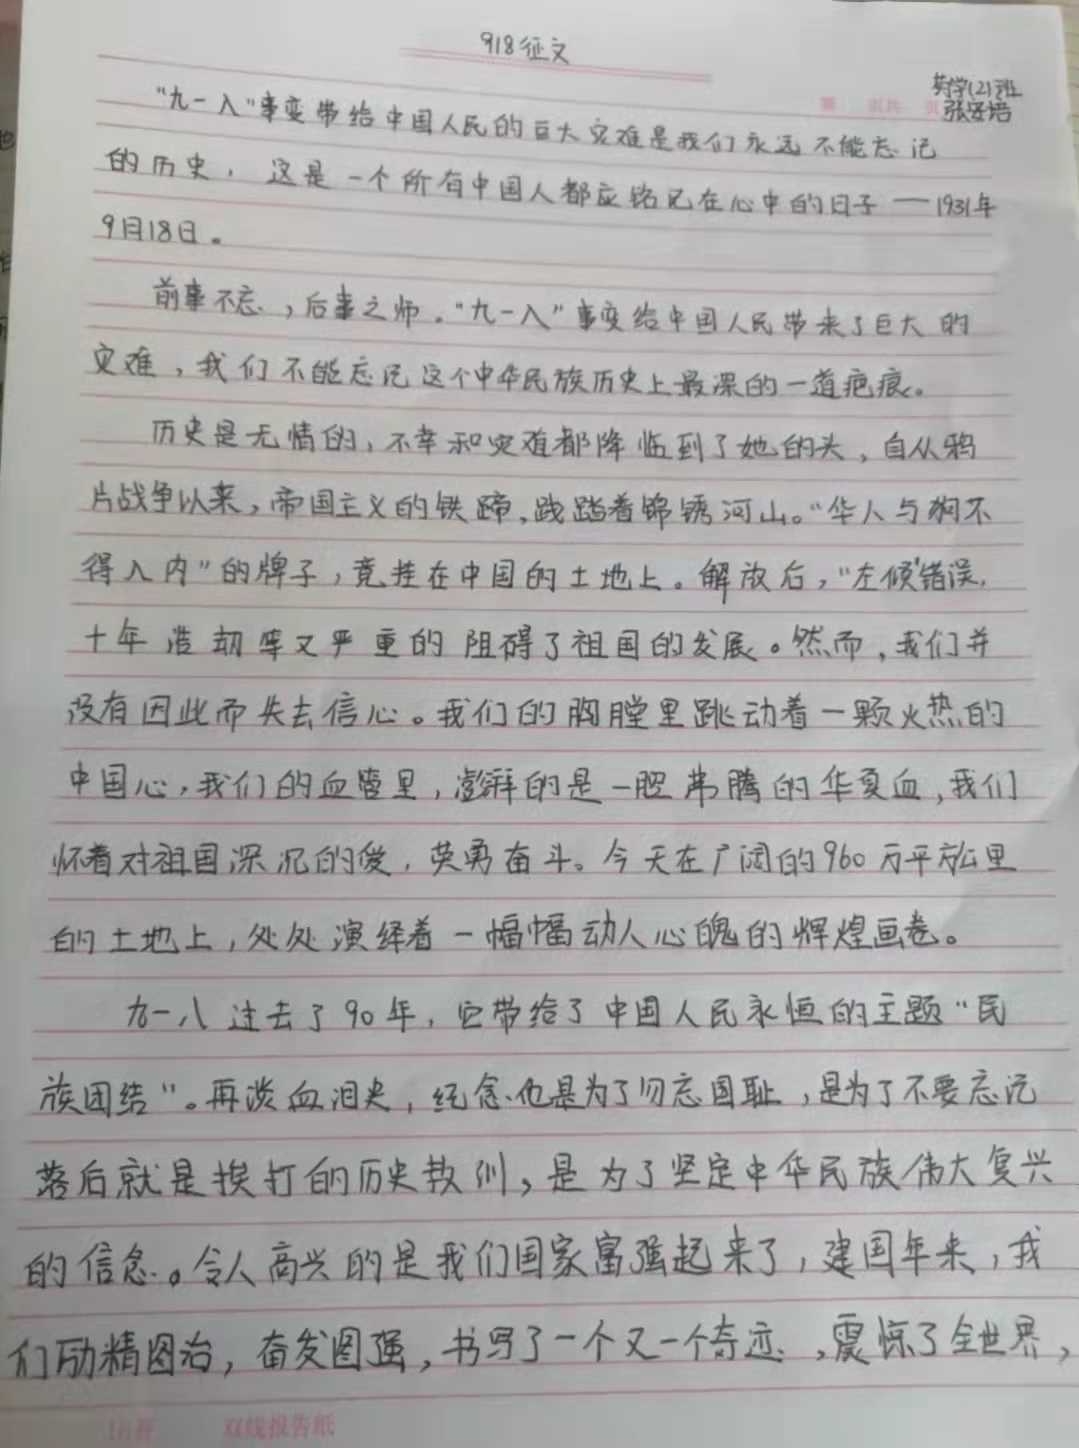 918征文
英学(2)班
张安培
第 页共 页
“九一八”事变带给中国人民的巨大灾难是我们永远不能忘记
的历史，这是一个所有中国人都应铭记在心中的日子——1931年
9月18日。
前事不忘，后事之师。“九一八”事变给中国人民带来了巨大的
灾难，我们不能忘记这个中华民族历史上最深的一道疤痕。
历史是无情的，不幸和灾难都降临到了她的头，自从鸦
片战争以来，帝国主义的铁蹄，践踏着锦锈河山。“华人与狗不
得入内”的牌子，竟挂在中国的土地上。解放后，“左倾”错误，
十年浩劫等又严重的阻碍了祖国的发展。然而，我们并
没有因此而失去信心。我们的胸膛里跳动着一颗火热的
中国心，我们的血管里，澎湃的是一腔沸腾的华夏血，我们
怀着对祖国深沉的爱，英勇奋斗。今天在广阔的960万平方公里
的土地上，处处演绎着一幅幅动人心魄的辉煌画卷。
九一八过去了90年，它带给了中国人民永恒的主题“民
族团结”。再谈血泪史，纪念也是为了勿忘国耻，是为了不要忘记
落后就是挨打的历史教训，是为了坚定中华民族伟大复兴
的信念。令人高兴的是我们国家富强起来了，建国年来，我
们励精图治，奋发图强，书写了一个又一个奇迹，震惊了全世界，
16开 双线报告纸